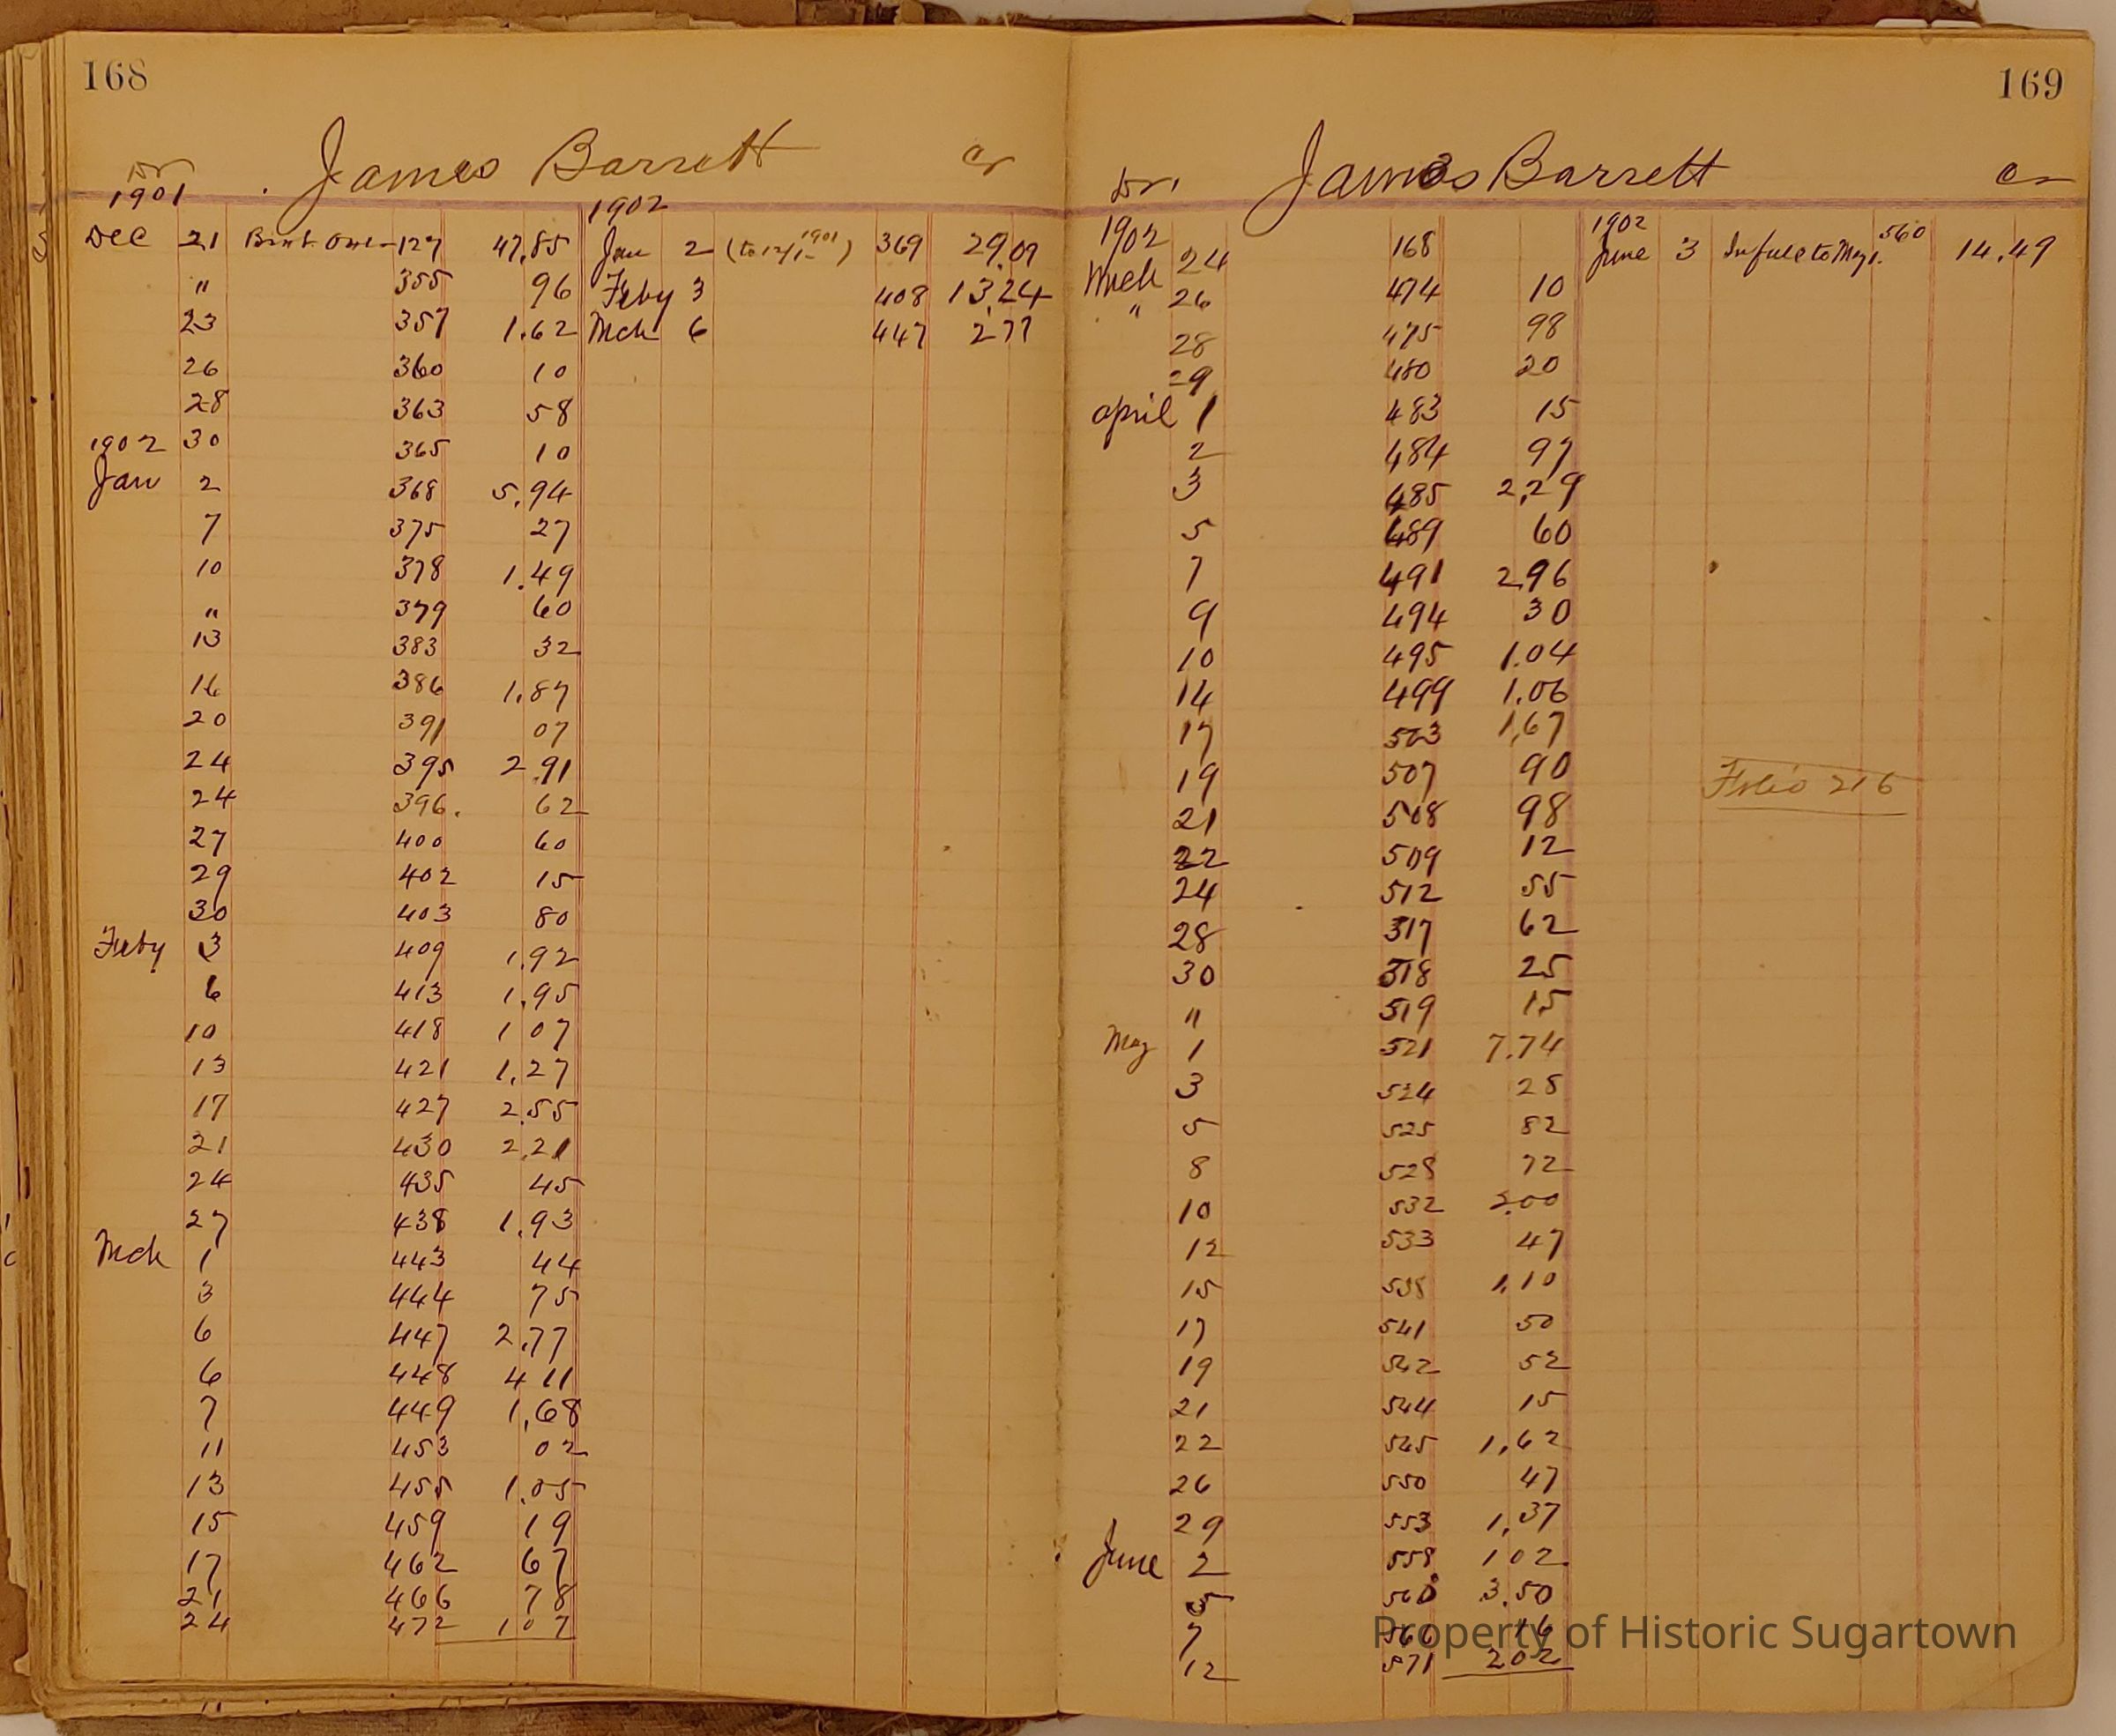 168
Dr James Barrett Cr
1901 1902
Dec 21 Brot Over 127 47.85 Jan 2 (to 12/1- 1901) 369 29.09
" 355 96 Feby 3 408 13.24
23 357 1.62 Mch 6 447 2 77
26 360 10
28 363 58
1902 30 365 10
Jan 2 368 5.94
7 375 27
10 378 1.49
" 379 60
13 383 32
16 386 1.87
20 391 07
24 395 2.91
24 396. 62
27 400 60
29 402 15
30 403 80
Feby 3 409 1.92
6 413 1.95
10 418 1 07
13 421 1.27
17 427 2.55
21 430 2.21
24 435 45
27 438 1.93
Mch 1 443 44
3 444 75
6 447 2.77
6 448 4 11
7 449 1.68
11 453 02
13 455 1.05
15 459 19
17 462 67
21 466 78
24 472 1 07
169
Dr. James Barrett Cr
1902 168 1902
Mch 24 June 3 In full to May 1. 560 14.49
" 26 474 10
28 475 98
29 480 20
April 1 483 15
2 484 97
3 485 2.29
5 489 60
7 491 2.96
9 494 30
10 495 1.04
14 499 1.06
17 503 1.67
19 507 90
Folio 216
21 508 98
22 509 12
24 512 55
28 317 62
30 518 25
" 519 15
May 1 521 7.74
3 524 28
5 525 82
8 528 72
10 532 2.00
12 533 47
15 538 1.10
17 541 50
19 542 52
21 544 15
22 545 1.62
26 550 47
29 553 1.37
June 2 558 1 02
560 3.50
7 566 16
12 571 2 02
Property of Historic Sugartown